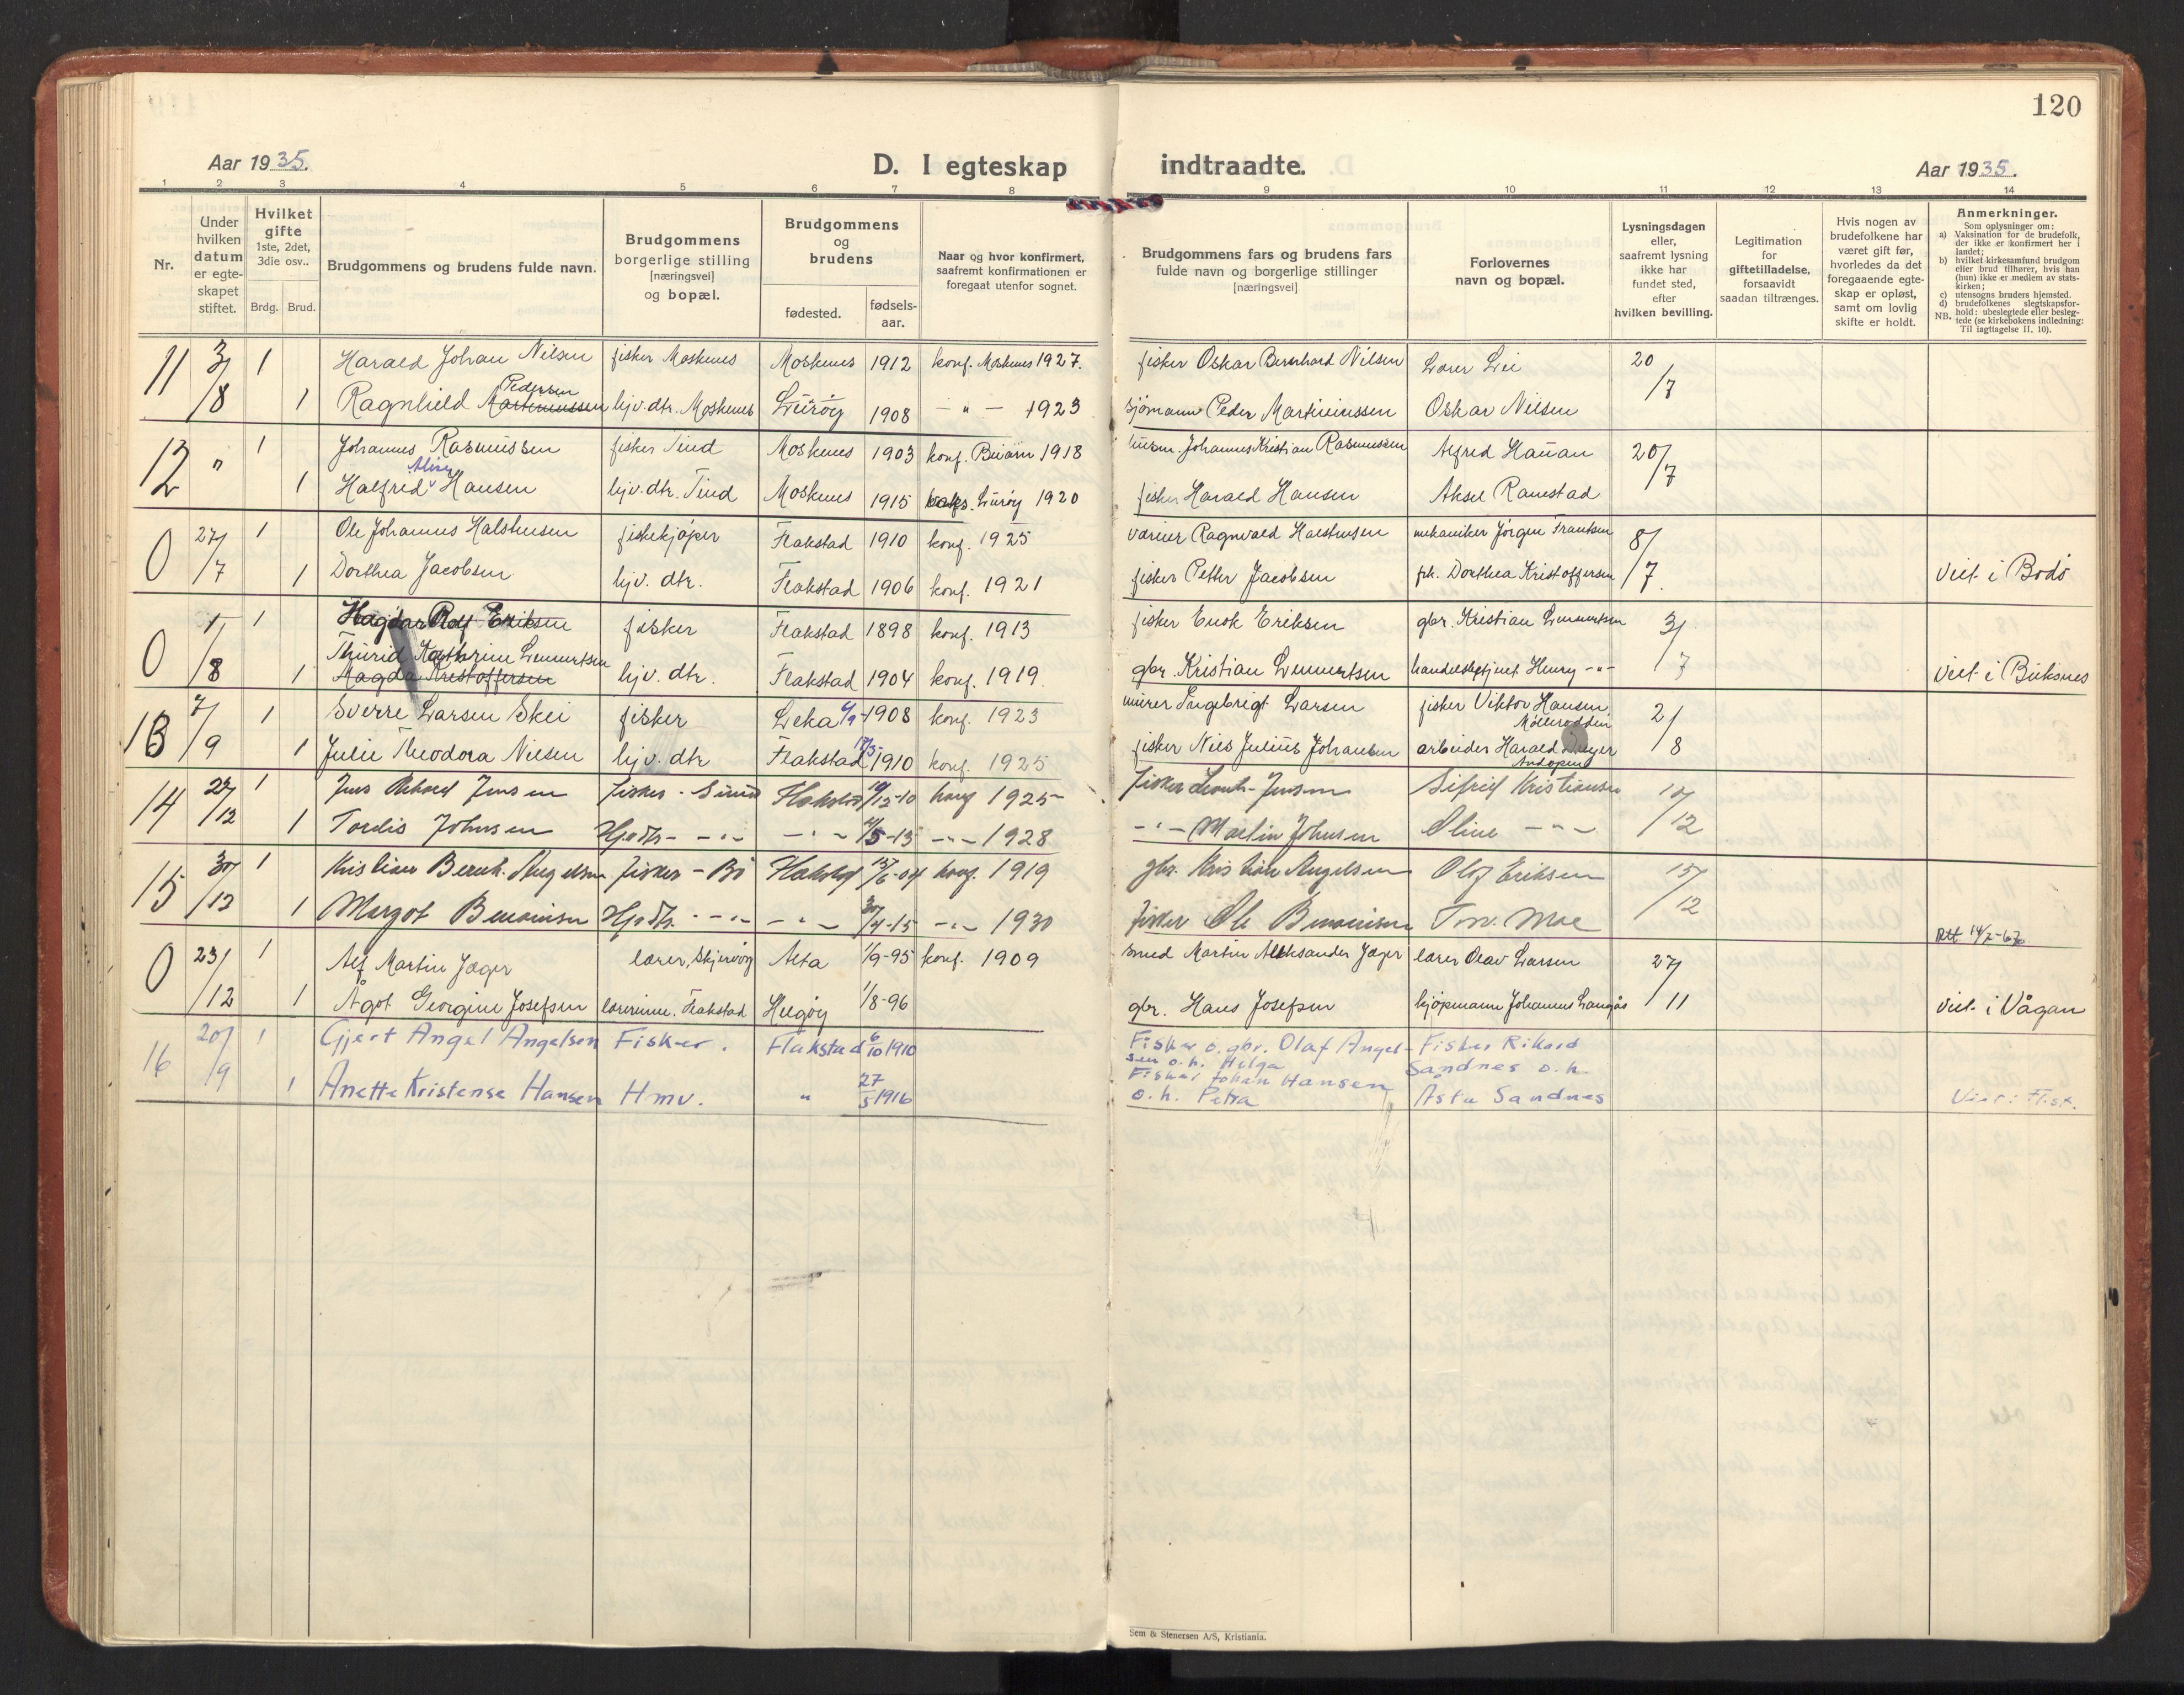 120
Aar 1935.
D. I egteskap
indtraadte.
Aar 1935.
1 2 3 4 5 6 7 8 9 10 11 12 13 14
Nr.
Under hvilken datum er egte-skapet stiftet.
Hvilket gifte 1ste, 2det, 3die osv..
Brdg. Brud.
Brudgommens og brudens fulde navn.
Brudgommens borgerlige stilling [næringsvei] og bopæl.
Brudgommens og brudens
fødested.
fødsels-aar.
Naar og hvor konfirmert, saafremt konfirmationen er foregaat utenfor sognet.
Brudgommens fars og brudens fars fulde navn og borgerlige stillinger [næringsvei]
Forlovernes navn og bopæl.
Lysningsdagen eller, saafremt lysning ikke har fundet sted, efter hvilken bevilling.
Legitimation for giftetilladelse, forsaavidt saadan tiltrænges.
Hvis nogen av brudefolkene har været gift før, hvorledes da det foregaaende egte-skap er opløst, samt om lovlig skifte er holdt.
Anmerkninger.
Som oplysninger om:
a) Vaksination for de brudefolk, der ikke er konfirmert her i landet;
b) hvilket kirkesamfund brudgom eller brud tilhører, hvis han (hun) ikke er medlem av stats-kirken;
c) utensogns bruders hjemsted.
d) brudefolkenes slegtskapsfor-hold: ubeslegtede eller besleg-tede (se kirkebokens indledning: Til iagttagelse II, 10).
NB.
11 3/8 1 Harald Johan Nilsen fisker Moskenes Moskenes 1912 konf. Moskenes 1927. fisker Oskar Bernhard Nilsen Lærer Lei 20/7
1 Ragnhild Martinussen Pedersen hjv. dtr. Moskenes Lurøy 1908 - " - 1923 sjømann Peder Martinussen Oskar Nilsen
12 " 1 Johannes Rasmussen fisker Tind Moskenes 1903 konf. Buksn 1918 Johannes Kristian Rasmussen Alfred Hauan 20/7
1 Halfred Hansen hjv. dtr. Tind Moskenes 1915 Lurøy 1920 fisker Harald Hansen Aksel Ramstad
0 27/7 1 Ole Johannes Halstensen fiskekjøper Flakstad 1910 konf. 1925 Ragnvald Halstensen mekaniker Jørgen Frantsen 8/7
1 Dorthea Jacobsen hjv. dtr. Flakstad 1906 konf. 1921 fisker Petter Jacobsen frk. Dorthea Kristoffersen Viet i Bodø
0 1/8 1 Rolf Eriksen fisker Flakstad 1898 konf. 1913 fisker Enok Eriksen gbr. Kristian Lennertsen 3/7
Thurid Kathrine Lennertsen
1 Magda Kristoffersen hjv. dtr. Flakstad 1904 konf. 1919. gbr. Kristian Lennertsen handelsbetjent Henry - " - Viet i Buksnes
13 7/9 1 Sverre Larsen Skei fisker Leka 1908 konf. 1923 murer Ingebrigt Larsen fisker Viktor Hansen 2/8
Møllerodden
1 Julie Theodora Nilsen hjv. dtr Flakstad 17/5 1910 konf. 1925 fisker Nils Julius Johansen arbeider Harald
14 26/12 1 Jens Jensen Fisker - Sund Flakstad 10/12-10 konf 1925 Fisker Jensen Sifrid Kristiansen 10/12
1 Tordis Johnsen Hjdtr - " - - " - 4/5-13 - " - 1928 - " - Martin Johnsen Oline - " -
15 30/12 1 Kristian Bernh. Angelsen Fisker - Bø Flakstad 15/6-04 konf. 1919 gbr. Kristian Angelsen Olaf Eriksen 15/12
1 Margot Benoninsen Hjdtr. - " - - " - 30/4-15 - " - 1930 Fisker Ole Benoninsen Torv. Moe
Att 14/2-67
0 23/12 1 Alf Martin Jæger lærer, Skjervøy Alta 1/9-95 konf. 1909 smed Martin Aleksander Jæger lærer Olav Larsen 27/11
1 Ågot Georgine Josefsen lærerinne. Flakstad Helgøy 1/8-96 gbr. Hans Josefsen kjøpmann Johannes Langås Viet i Vågan
16 20/9 1 Gjert Angel Angelsen Fisker. Flakstad 6/10 1910 Fisker o. gbr. Olaf Angel- Fisker Rikard
sen o.h. Helga Sandnes o.h.
1 Anette Kristense Hansen Hmv. " 27/5 1916 Fisker Johan Hansen
o.h. Petra Asta Sandnes Viet i Flst.
Sem & Stenersen A/S, Kristiania.